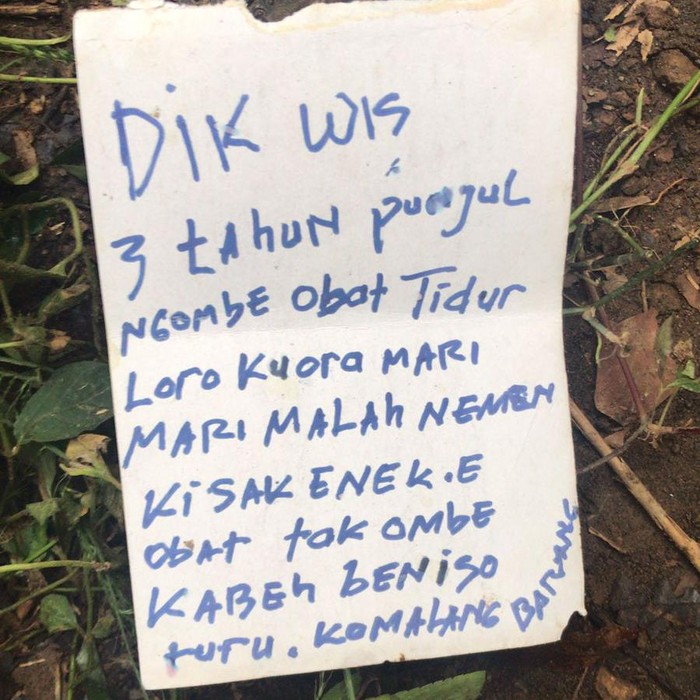 DIK WIS
3 tAhUN punjuL
NGOMBE Obat Tidur
Loro Kuora MARI
MARI MALAh NEMEN
KiSAK ENEK.E
obAt tak OMBE
KABEh bENiso
turu. KOMALANG BARANG